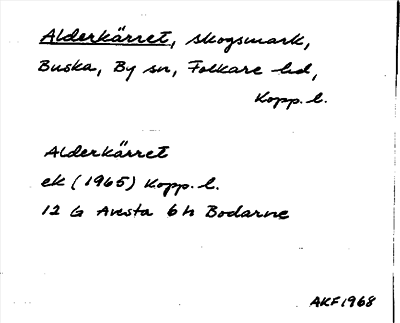 Alderkärret, skogsmark,
Buska, By sn, Folkare hd,
Kopp. l.
Alderkärret
ek (1965) Kopp. l.
12 G Avesta 6 h Bodarne
AKF 1968